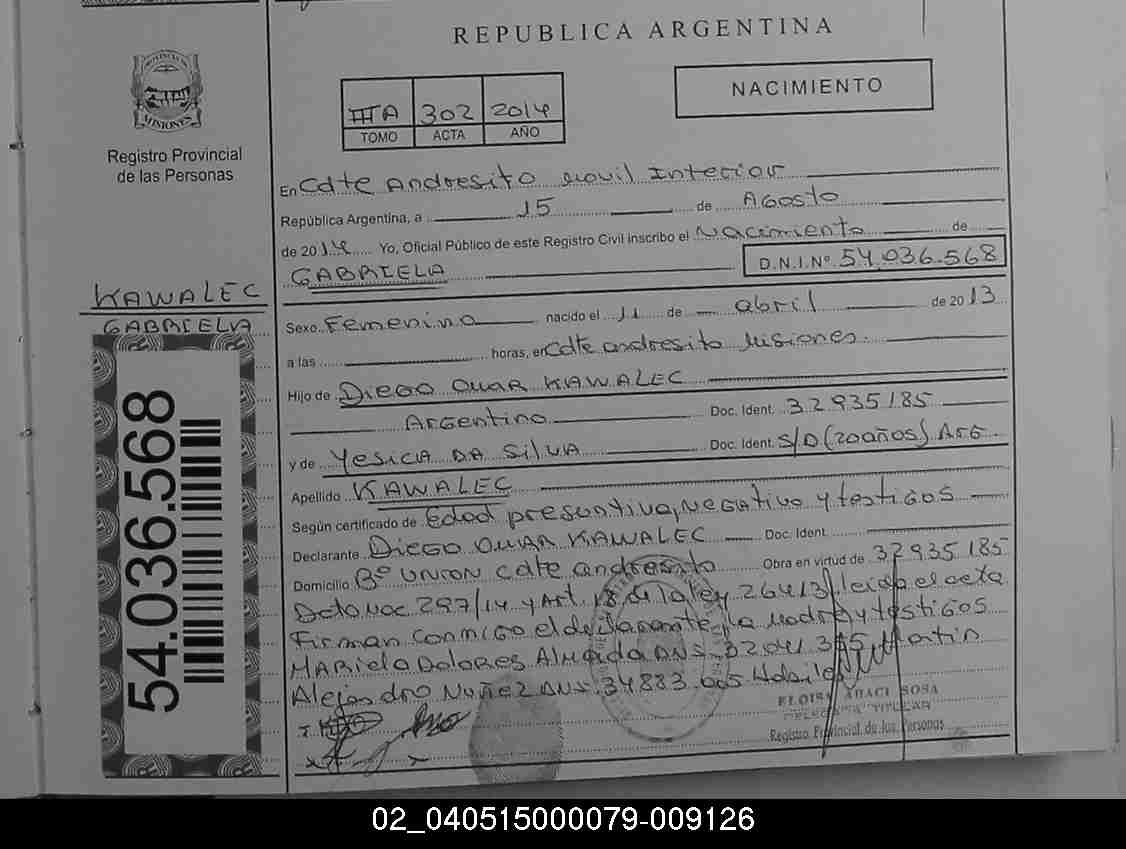 REPUBLICA ARGENTINA
PROVINCIA DE
MISIONES
Registro Provincial
de las Personas
IIIA 302 2014
TOMO ACTA AÑO
NACIMIENTO
En Cdte Andresito Movil Interior
República Argentina, a 15 de Agosto
de 2014 Yo, Oficial Público de este Registro Civil inscribo el Nacimiento de
GABRIELA D.N.I.Nº 54.036.568
KAWALEC
GABRIELA
54.036.568
Sexo Femenino nacido el 11 de abril de 2013
a las horas, en Cdte andresito Misiones.
Hijo de DIEGO OMAR KAWALEC
Argentino Doc. Ident. 32935185
y de Yesica DA SILVA Doc. Ident. S/D (20 años) ARG
Apellido KAWALEC
Según certificado de Edad presuntiva, negativo y testigos
Declarante DIEGO OMAR KAWALEC Doc. Ident.
Domicilio Bº UNION Cdte andresito Obra en virtud de 32935185
Dcto Nac 297/14 y Art. 18 de la ley 26413 leida el acta
Firman conmigo el declarante, la madre y testigos
MARIELA DOLORES Almada DNI 32041345 Martin
Alejandro Nuñez DNI 34883.605 Habiles
SOSA
TITULAR
Registro Provincial de las Personas
02_040515000079-009126